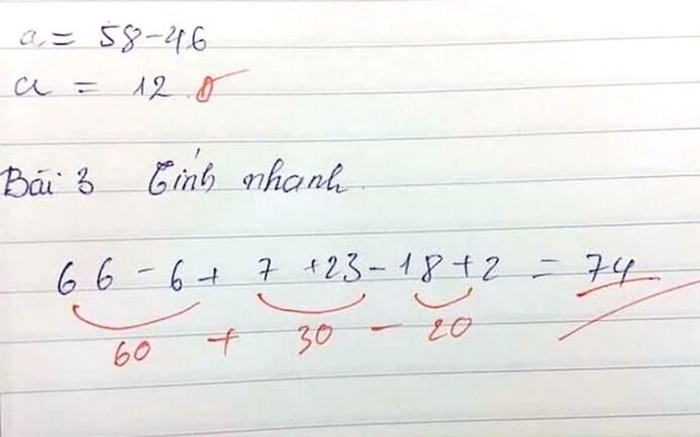 a = 58-46
a = 12
Bài 3 Tính nhanh
66 - 6 + 7 + 23 - 18 + 2 = 74
60 + 30 - 20